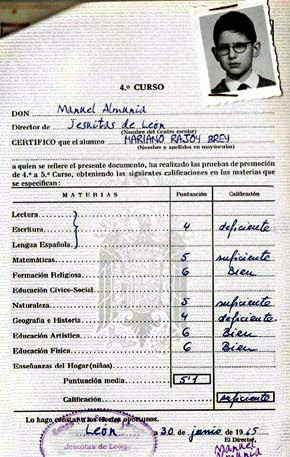 4.º CURSO
DON Manuel Almunia
Director de Jesuitas de León
(Nombre del Centro escolar)
CERTIFICO que el alumno MARIANO RAJOY BREY
(Nombre y apellidos en mayúsculas)
a quien se refiere el presente documento, ha realizado las pruebas de promoción
de 4.º a 5.º Curso, obteniendo las siguientes calificaciones en las materias que
se especifican:
MATERIAS Puntuación Calificación
Lectura
Escritura 4 deficiente
Lengua Española
Matemáticas 5 suficiente
Formación Religiosa 6 Bien
Educación Cívico-Social
Naturaleza 5 suficiente
Geografía e Historia 4 deficiente
Educación Artística 6 Bien
Educación Física 6 Bien
Enseñanzas del Hogar (niñas)
Puntuación media 5'1
Calificación suficiente
Lo hago constar a los efectos oportunos.
León a 30 de junio de 1965
El Director,
Jesuitas de León
Manuel